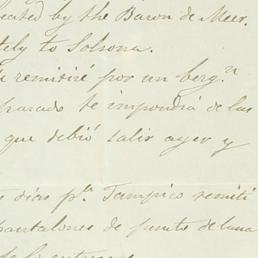 eated by the Baron de Meer.
tely to Solsona.
remitiré por un berg.n
te impondrá de las
que debió salir ayer y
dias p.a Tampico remiti
pantalones de punto de lana